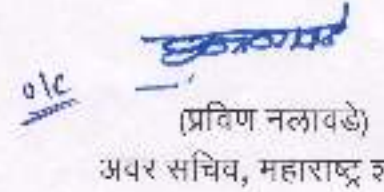 o/c
(प्रविण नलावडे)
अवर सचिव, महाराष्ट्र